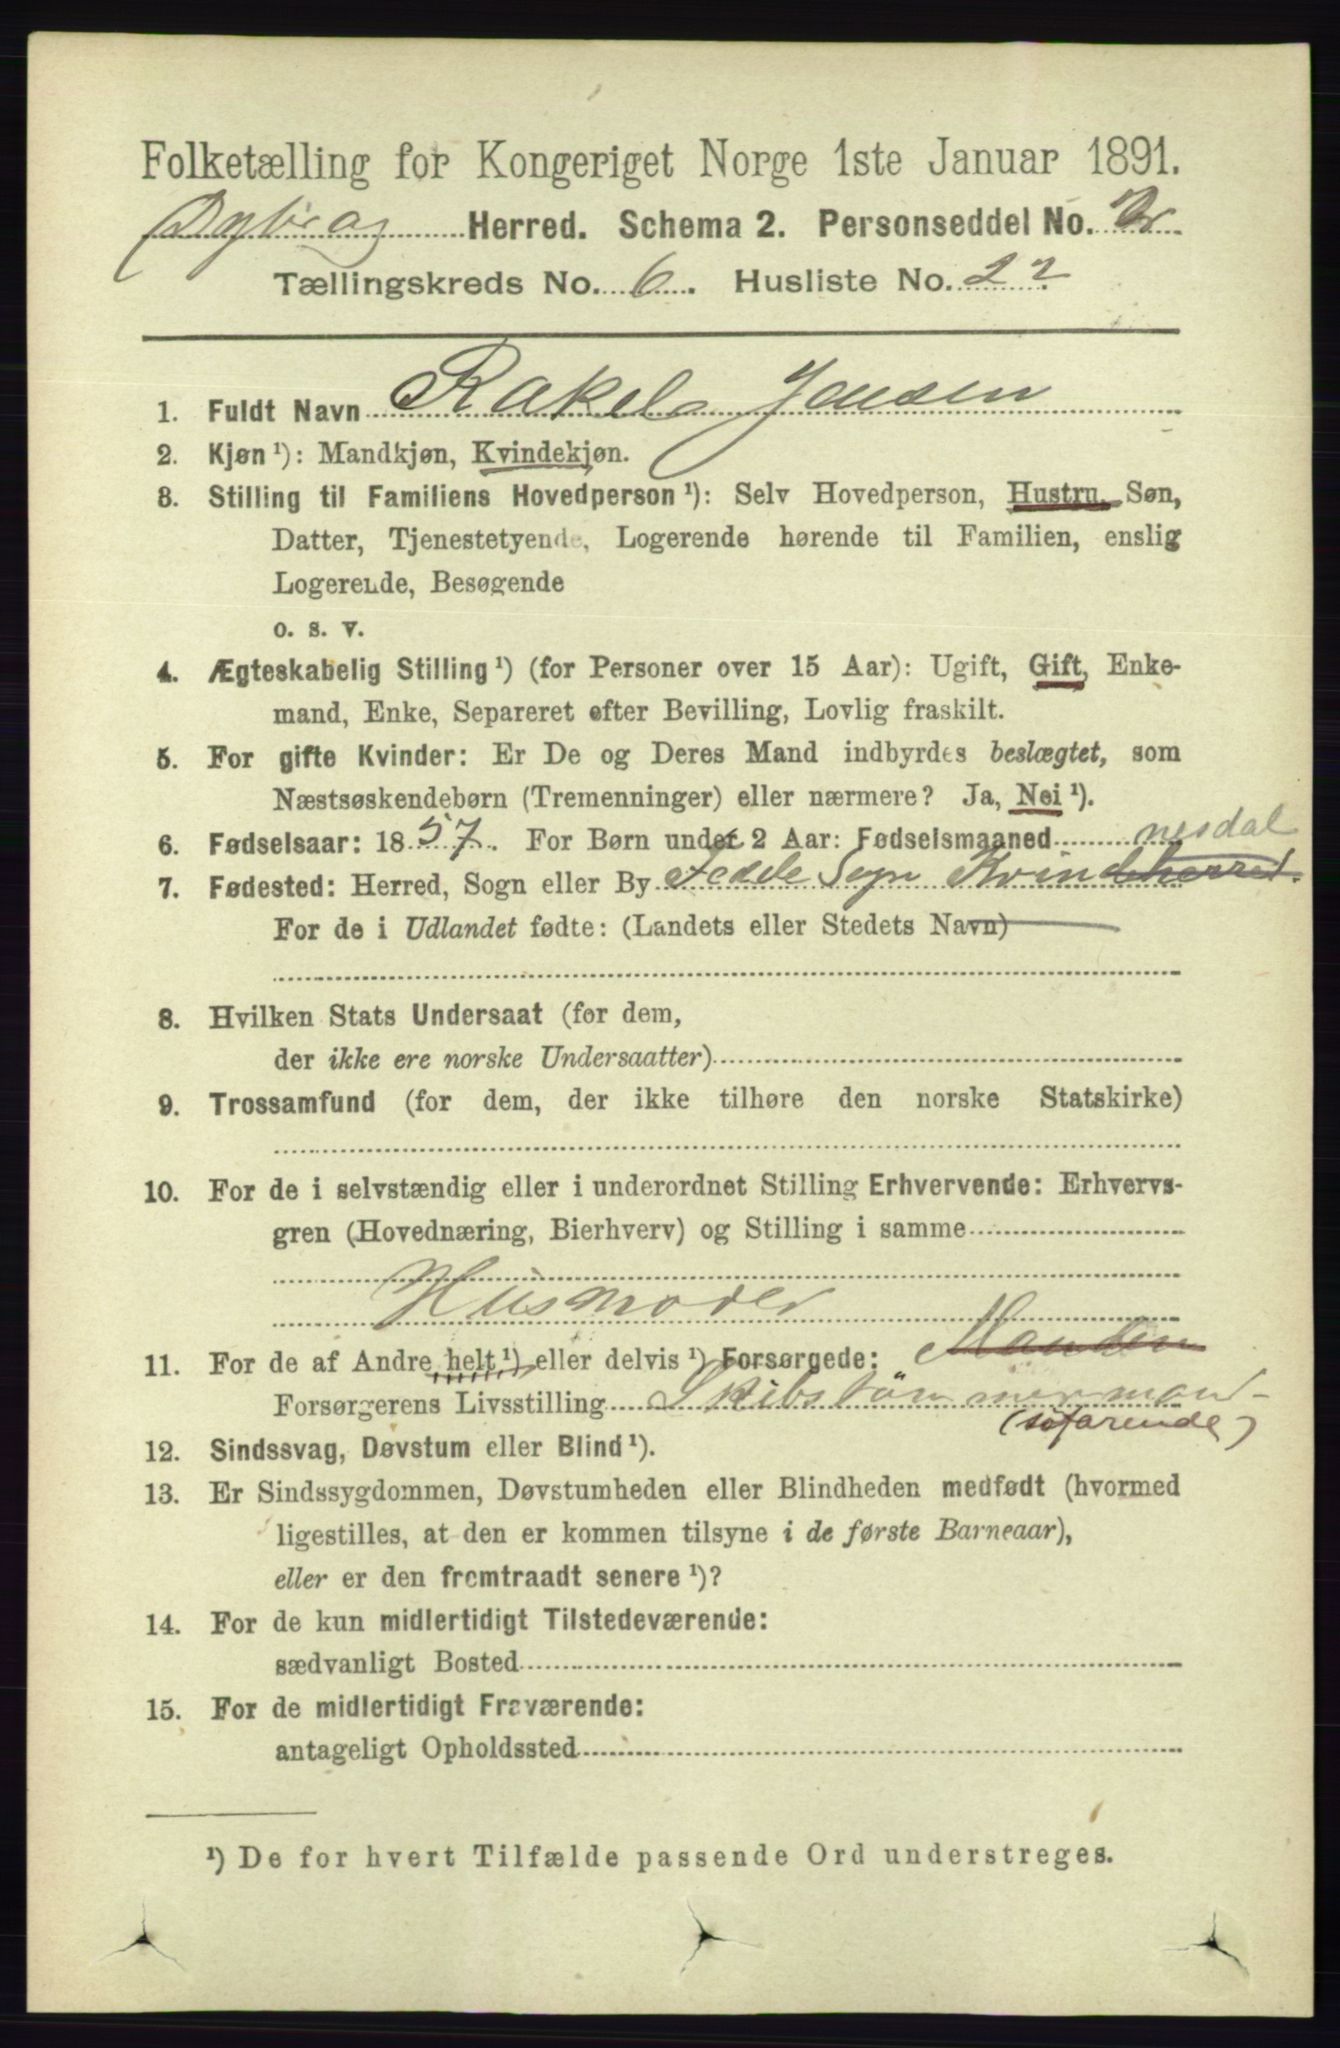 Folketælling for Kongeriget Norge 1ste Januar 1891.
Dybvåg Herred. Schema 2. Personseddel No. 2
Tællingskreds No. 6. Husliste No. 22
1. Fuldt Navn Rakel Jensen
2. Kjøn ¹): Mandkjøn, Kvindekjøn.
3. Stilling til Familiens Hovedperson ¹): Selv Hovedperson, Hustru, Søn,
Datter, Tjenestetyende, Logerende hørende til Familien, enslig
Logerende, Besøgende
o. s. v.
4. Ægteskabelig Stilling ¹) (for Personer over 15 Aar): Ugift, Gift, Enke-
mand, Enke, Separeret efter Bevilling, Lovlig fraskilt.
5. For gifte Kvinder: Er De og Deres Mand indbyrdes beslægtet, som
Næstsøskendebørn (Tremenninger) eller nærmere? Ja, Nei ¹).
6. Fødselsaar: 1857. For Børn under 2 Aar: Fødselsmaaned
nesdal
7. Fødested: Herred, Sogn eller By Fedde Sogn Kvindeherred.
For de i Udlandet fødte: (Landets eller Stedets Navn)
8. Hvilken Stats Undersaat (for dem,
der ikke ere norske Undersaatter)
9. Trossamfund (for dem, der ikke tilhøre den norske Statskirke)
10. For de i selvstændig eller i underordnet Stilling Erhvervende: Erhvervs-
gren (Hovednæring, Bierhverv) og Stilling i samme
Husmoder
11. For de af Andre helt ¹) eller delvis ¹) Forsørgede: Manden
Forsørgerens Livsstilling Skibstömmermand
(söfarende)
12. Sindssvag, Døvstum eller Blind ¹).
13. Er Sindssygdommen, Døvstumheden eller Blindheden medfødt (hvormed
ligestilles, at den er kommen tilsyne i de første Barneaar),
eller er den fremtraadt senere ¹)?
14. For de kun midlertidigt Tilstedeværende:
sædvanligt Bosted
15. For de midlertidigt Fraværende:
antageligt Opholdssted
¹) De for hvert Tilfælde passende Ord understreges.